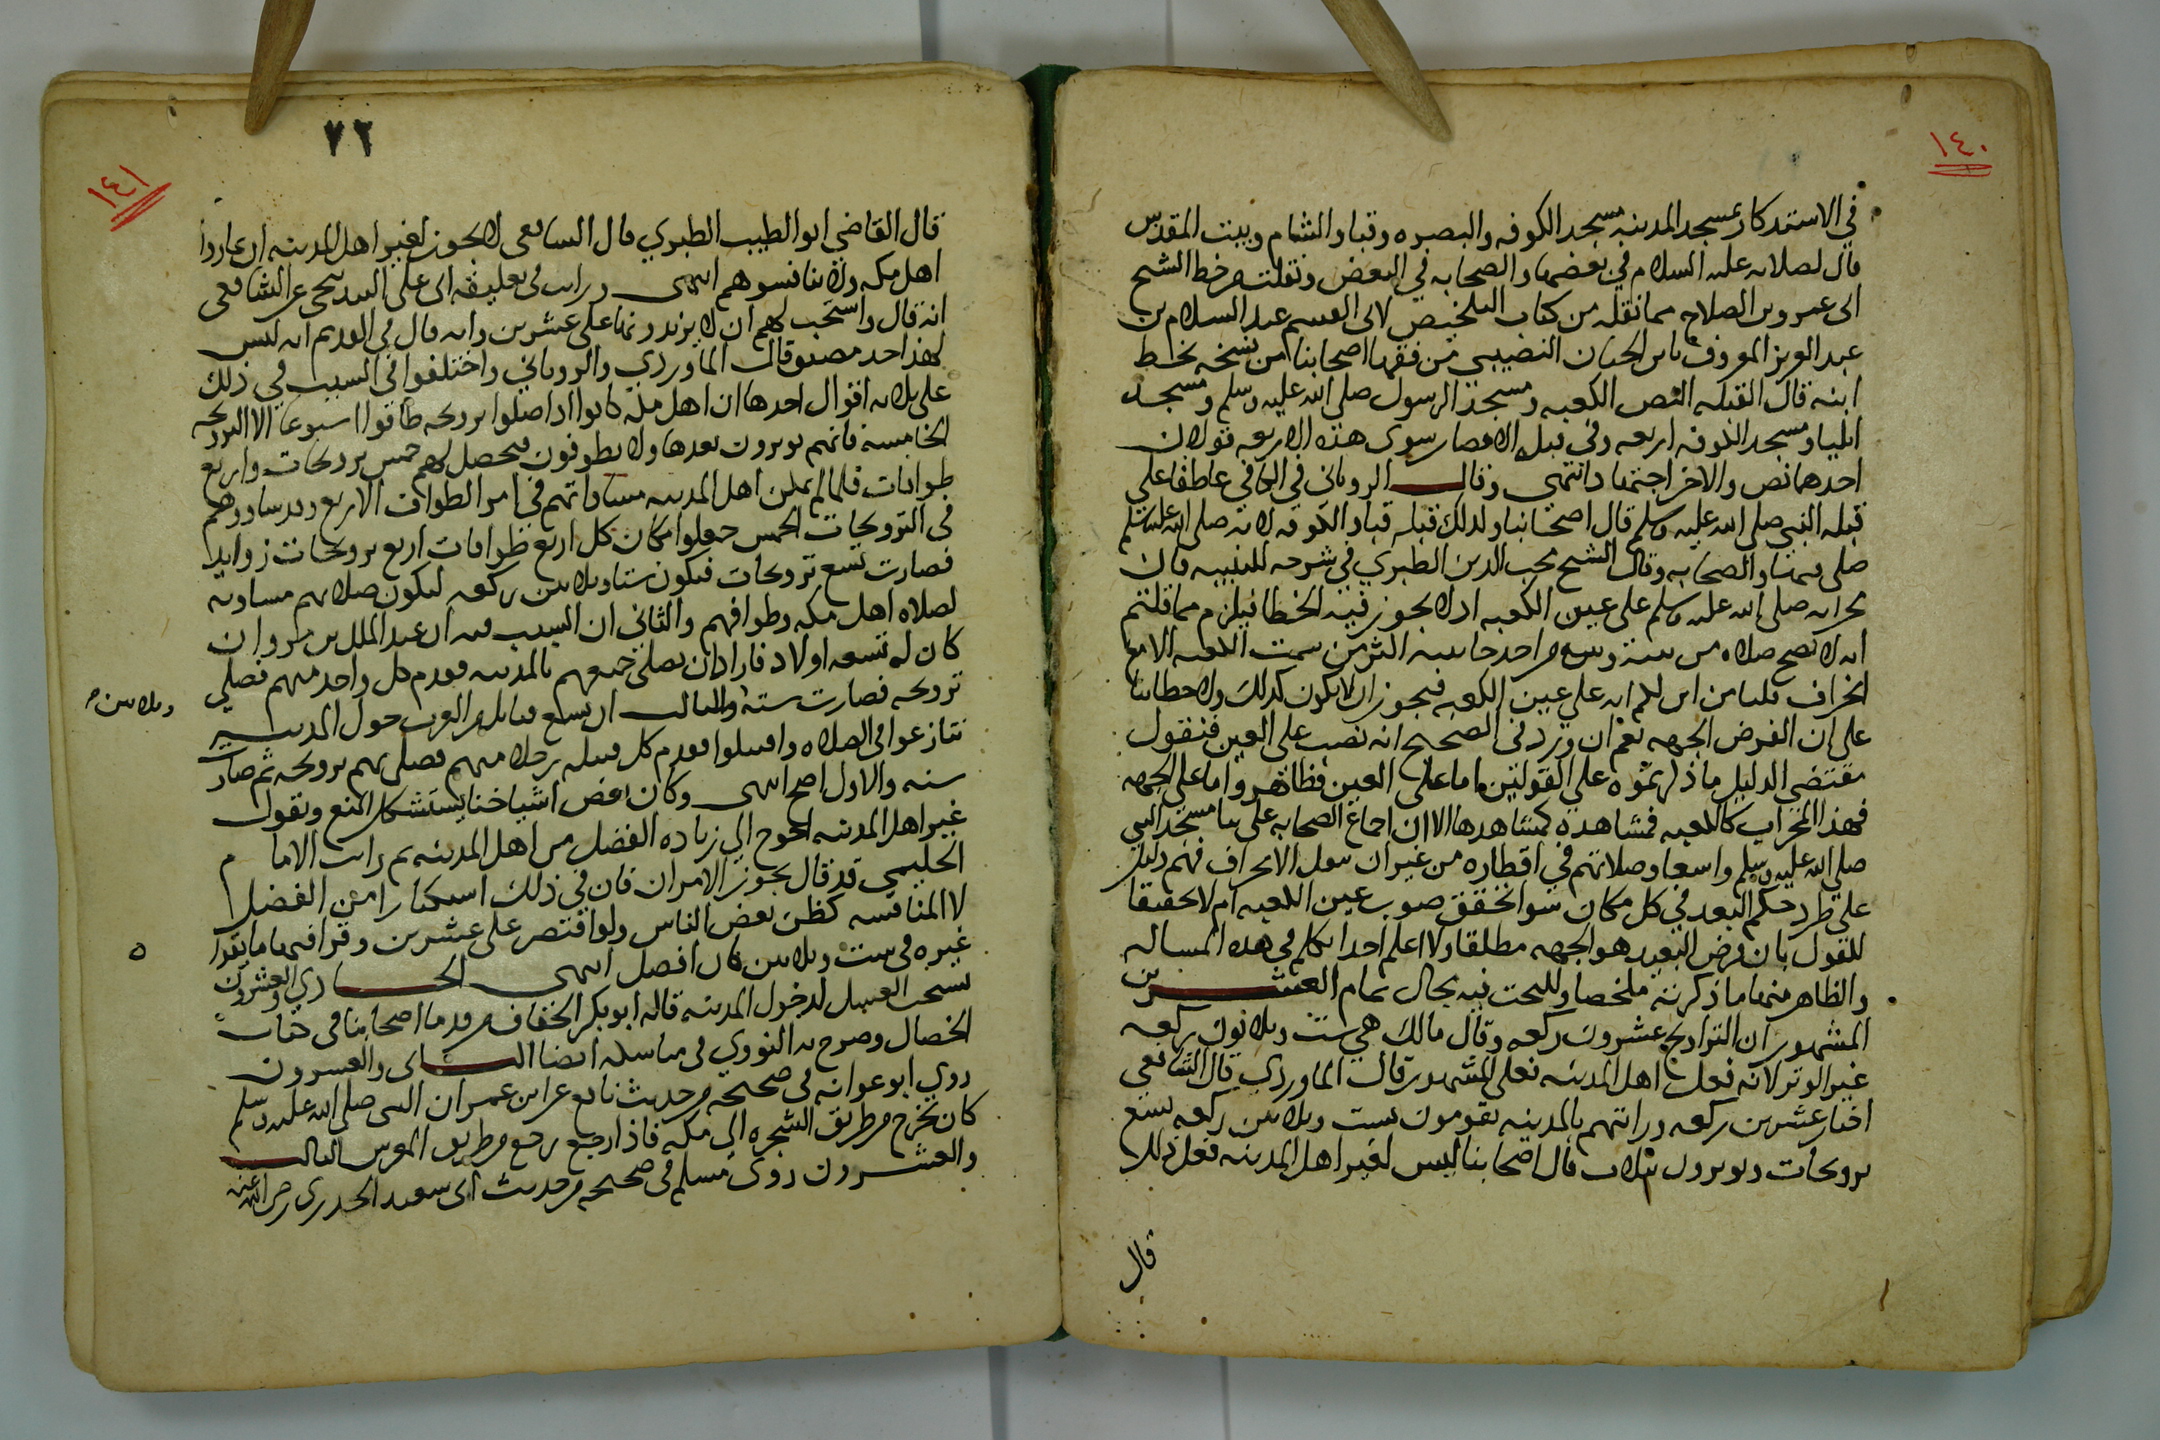 ١٤٠
في الاستدكار عسجد المدينة مسجد الكوفه والبصره وقباو الشام وبيت المقدس
قال لصلاته عليه السلام في بعضها والصحابه في البعض ونقلت من خط الشيخ
ابي عمرو بن الصلاح مما نقله من كتاب التلخيص لابي القسم عبد السلام بن
عبد العزيز المعروف بابن النصيبي من فقها اصحابنا من نسخه بخط
ابنه قال القبله النص الكعبه ومسجد الرسول صلى الله عليه وسلم ومسجد
ايليا ومسجد الكوفه اربعه وفي قبله الامصار سوى هذه الاربعه قولان
احدهما نص والاخر اجتهاد انتهى وقال الروياني في الكافي عاطفا على
قبله النبي صلى الله عليه وسلم قال اصحابنا ولذلك قبله قبا والكوفه لانه صلى الله عليه وسلم
صلى بقبا والصحابه وقال الشيخ محب الدين الطبري في شرحه للتنبيه فان
محرابه صلى الله عليه وسلم على عين الكعبه اذ لا يجوز فيه الخطا فيلزم مما قلتم
انه لا تصح صلاه من بينه وبينه من احد جانبيه اكثر من سمت الكعبه الا مع
انحراف قلنا من اين لكم انه على عين الكعبه فيجوز ان لا يكون كذلك ولا خطا بنا
على ان الفرض الجهه نعم ان ورد في الصحيح انه نصب على العين فنقول
مقتضى الدليل ما ذكرتموه على القولين اما على العين فظاهر واما على الجهه
فهذا المحراب كالكعبه فمشاهده كمشاهدها الا ان اجماع الصحابه على بنا مسجد النبي
صلى الله عليه وسلم واسعا وصلاتهم في اقطاره من غير ان نقل الانحراف فهم دليل
على طرد حكم البعد في كل مكان سوا تحقق صوب عين الكعبه ام لا تحقيقا
للقول بان فرض البعيد هو الجهه مطلقا ولا اعلم احدا تكلم في هذه المساله
والظاهر منها ما ذكرته ملخصا وللبحث فيه مجال تمام العشـــرين
المشهور ان التراويح عشرون ركعه وقال مالك هي ست وثلاثون ركعه
غير الوتر لانه فعل اهل المدينه فعلى المشهور قال الماوردي قال الشافعي
اختار عشرين ركعه ورايتهم بالمدينه يقومون بست وثلاثين ركعه بتسع
ترويحات ويوترون بثلاث قال اصحابنا ليس لغير اهل المدينه فعل ذلك
قال
٧٢
١٤١
قال القاضي ابو الطيب الطبري قال الشافعي لا يجوز لغير اهل المدينه ان يماروا
اهل مكه ولا ينافسوهم انتهى ورايت في تعليقه ابي على البندنيجي عن الشافعي
انه قال واستحب لهم ان لا يزيدونها على عشرين وانه قال في القديم انه ليس
لهذا حد مضيق قال الماوردي والروياني واختلفوا في السبب في ذلك
على ثلاثه اقوال احدها ان اهل مكه كانوا اذا صلوا ترويحه طافوا اسبوعا الا الترويحه
الخامسه فانهم يوترون بعدها ولا يطوفون فيحصل لهم خمس ترويحات واربع
طوافات فلما لم يمكن اهل المدينه مساواتهم في امر الطواف الاربع وقد ساووهم
في الترويحات الخمس جعلوا مكان كل اربع طوافات اربع ترويحات زوايد
فصارت تسع ترويحات فيكون ستا وثلاثين ركعه ليكون صلاتهم مساويه
لصلاه اهل مكه وطوافهم والثاني ان السبب فيه ان عبد الملك بن مروان
كان له تسعه اولاد فاراد ان يصلي جميعهم بالمدينه فقدم كل واحد منهم فصلى
ترويحه فصارت سته والثالث ان تسع قبايل من العرب حول المدينه
وثلاثين
تنازعوا في الصلاه واقتتلوا فقدم كل قبيله رجلا منهم فصلى بهم ترويحه ثم صارت
سنه والاول اصح انتهى وكان بعض اشياخنا يستشكل المنع ويقول
غير اهل المدينه احوج الى زياده الفضل من اهل المدينه ثم رايت الامام
الحليمي قد قال يجوز الامران فان في ذلك استكثارا من الفضل
لا المنافسه كظن بعض الناس ولو اقتصر على عشرين وقرا فيها ما يقرا
غيره في ست وثلاثين كان افضل انتهى الحـــادي والعشرون
يستحب الغسل لدخول المدينه قاله ابو بكر الخفاف من قدما اصحابنا في كتاب
الخصال وصرح به النووي في مناسكه ايضا الثـــاني والعشرون
روى ابو عوانه في صحيحه من حديث نافع عن ابن عمر ان النبي صلى الله عليه وسلم
كان يخرج من طريق الشجره الى مكه فاذا رجع رجع من طريق المعرس الثالـــث
والعشـــرون روى مسلم في صحيحه من حديث ابي سعيد الخدري رضي الله عنه